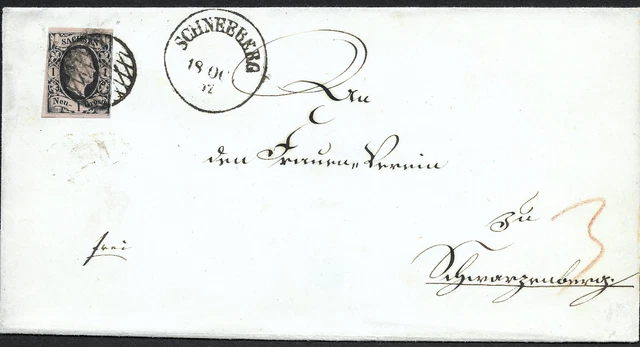 SACHSEN
1 1
Neu- 1
SCHNEEBERG
18 OC
An
den Frauen-Verein
zu
Schwarzenberg.
frei
3